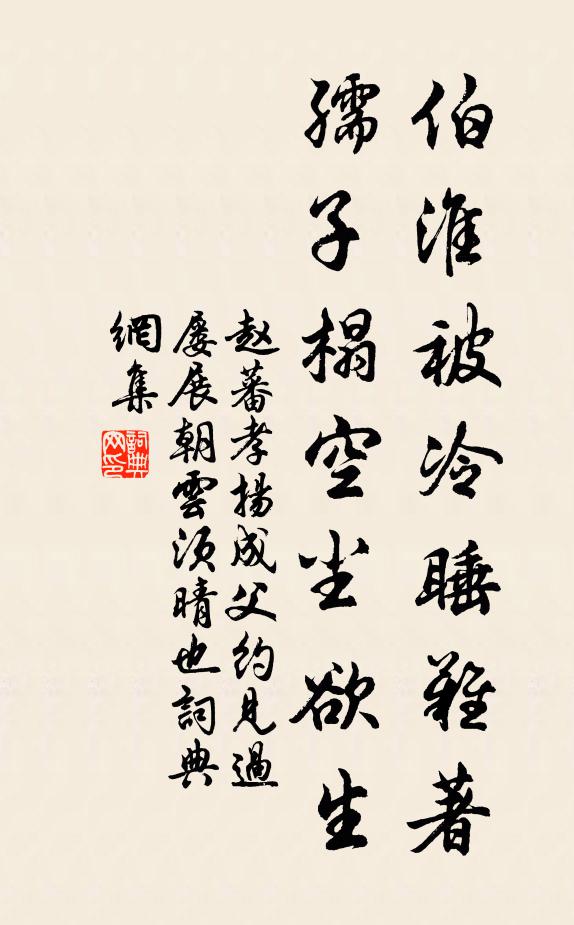 伯淮被冷睡難著
孺子榻空尘欲生
赵蕃孝揚成父約見過
屡展朝雲須晴也詞典
網集
詞典
网